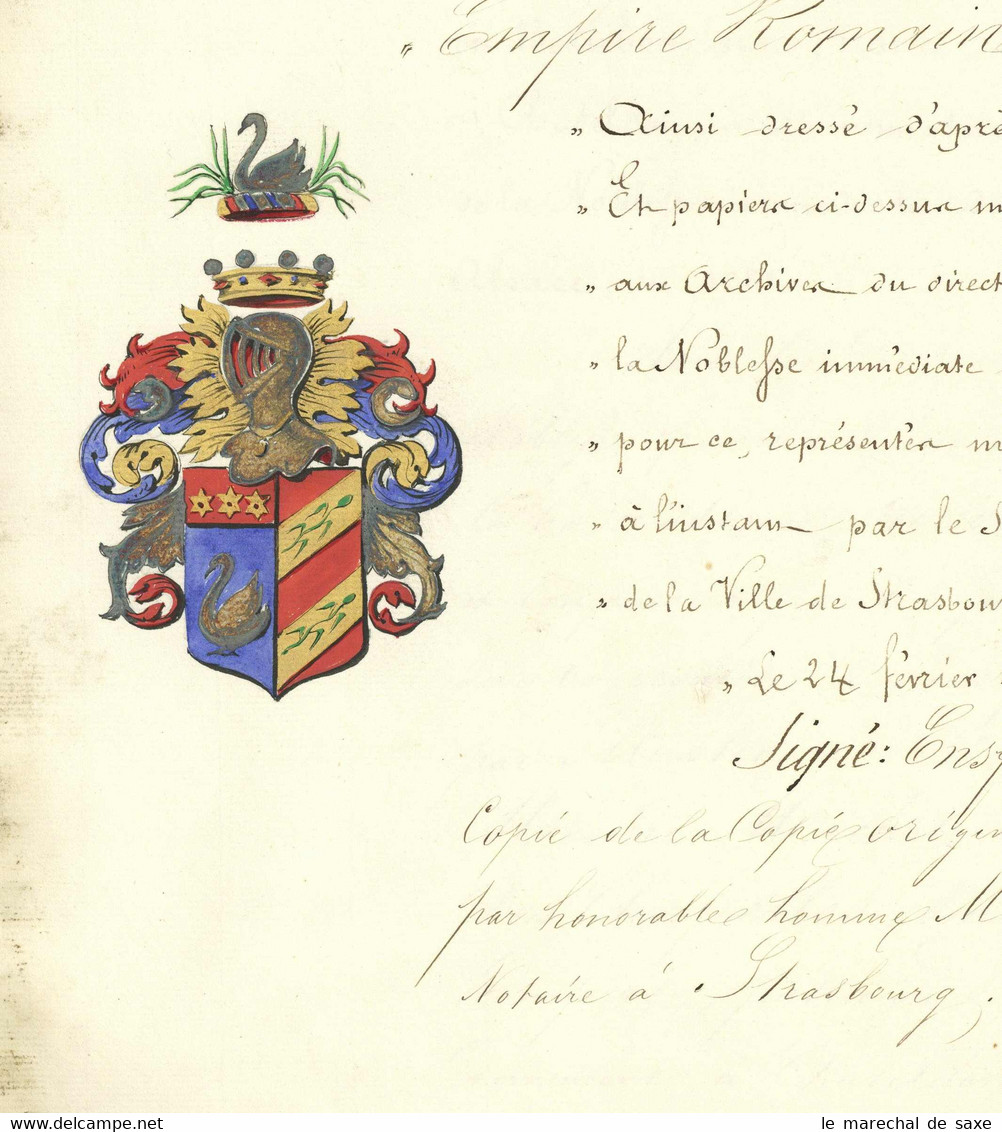 " Empire Romain
" Ainsi dressé d'aprè
" Et papiers ci-dessus m
" aux Archives du direct
" la Noblesse immédiate
" pour ce, représentés m
" à l'instant par le S
" de la Ville de Strasbou
" Le 24 février
Signé: Ens
Copié de la Copie origin
par honorable homme M
Notaire à Strasbourg,
le marechal de saxe